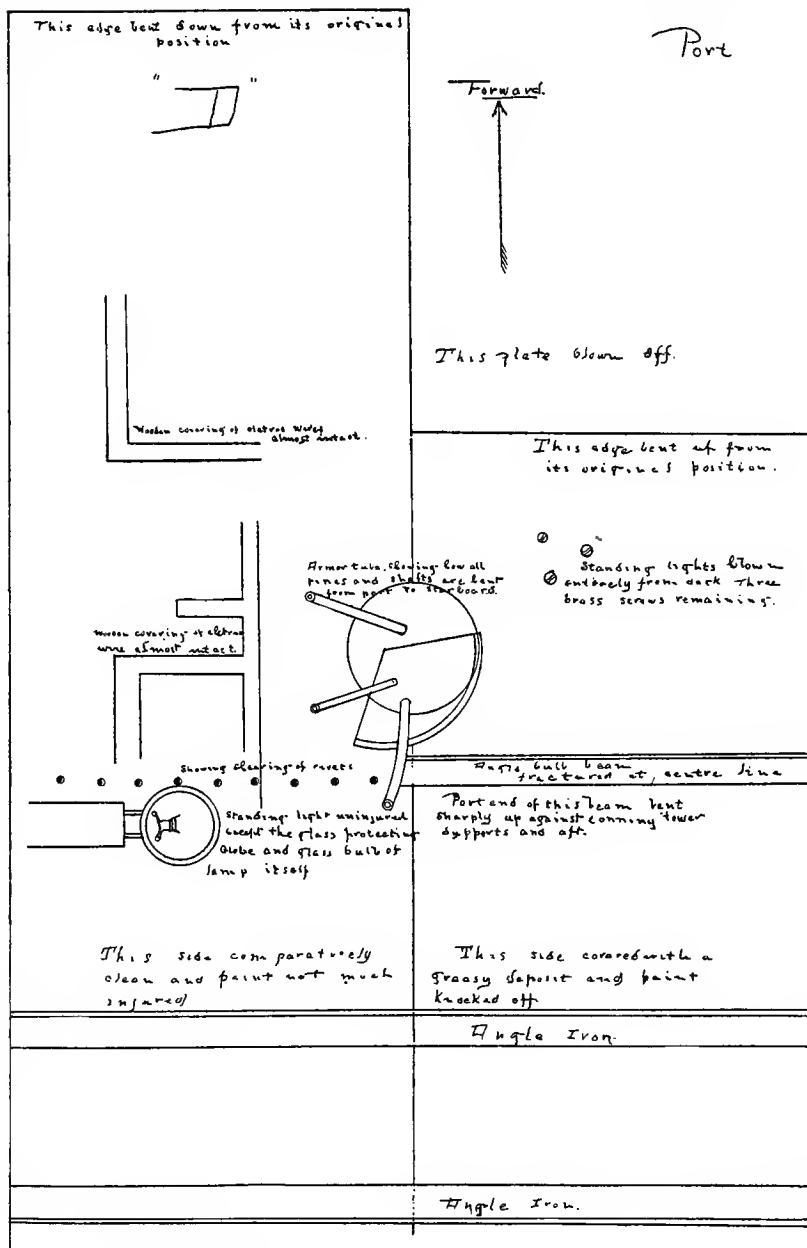 This edge bent down from its original
position
" "
Port
Forward.
This plate blown off.
Wooden covering of eletros wires
almost intact.
This edge bent up from
its original position.
Armor tube, showing how all
pipes and shafts are bent
from port to starboard.
Standing lights blown
entirely from deck Three
brass screws remaining.
Wooden covering of eletros
wire almost intact.
Showing shearing of revets
Angle bulb beam
fractured at, centre line
Standing light uninjured
except the glass protecting
Globe and glass bulb of
lamp itself
Port end of this beam bent
sharply up against conning tower
supports and aft.
This side comparatively
clean and paint not much
injured
This side covered with a
greasy deposit and paint
knocked off
Angle Iron.
Angle Iron.